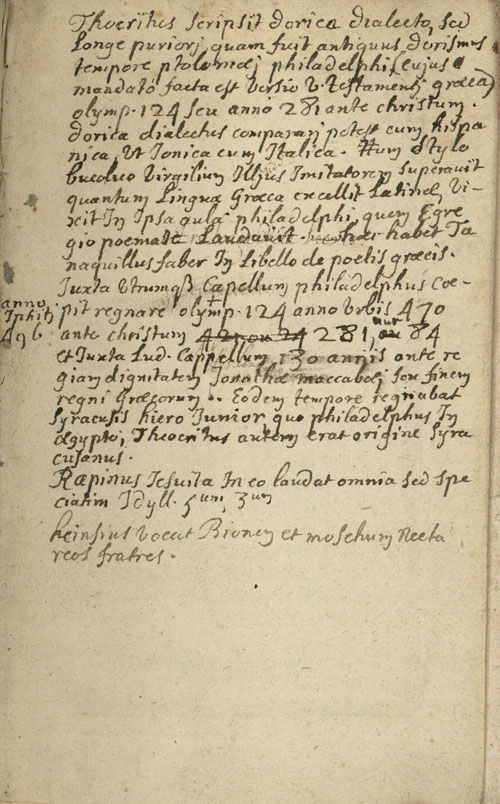 Theocritus scripsit dorica dialecto, sed
Longe puriorj, quam fuit antiquus dorismus
tempore ptolomæj philadelphi (cujus
mandato facta est versio v. testamentj græca)
olymp. 124 seu anno 281 ante christum.
dorica dialectus compararj potest cum hispa
nica, ut Ionica cum Italica. Hum stylo
bucolico Virgilium Illius Imitatorem superavit
quantum Lingua Græca excellit Latinæ, vi-
xit In Ipsa aula philadelphi, quem Egre
gio poemate Laudavit. hæc habet Ta
naquillus faber In Libello de poetis græcis.
Juxta Utrumq3 Capellum philadelphus Coe-
anno Iphitj 496
pit regnare olymp. 124 anno Urbis 470
ante christum 281, aut 84
et Juxta Lud. Cappellum, 130 annis ante re
giam dignitatem Jonathæ maccabæj seu finem
regni Græcorum.. Eodem tempore regnabat
syracusis hiero Junior quo philadelphus In
ægypto, Theocritus autem erat origine Syra
cusanus.
Rapinus Iesuita In eo laudat omnia sed spe
ciatim Idyll. 5um, 3um
heinsius vocat Bionem et moschum Necta
reos fratres.